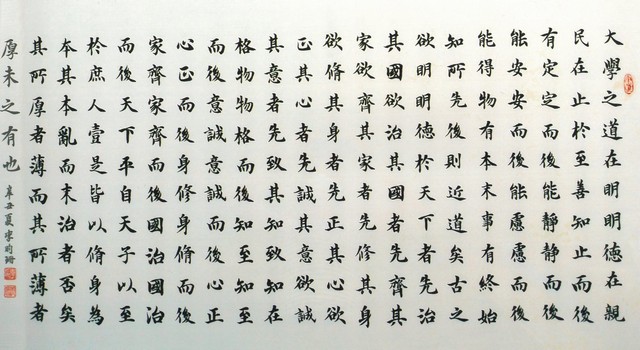 大學之道在明明德在親
民在止於至善知止而後
有定定而後能靜靜而後
能安安而後能慮慮而後
能得物有本末事有終始
知所先後則近道矣古之
欲明明德於天下者先治
其國欲治其國者先齊其
家欲齊其家者先修其身
欲脩其身者先正其心欲
正其心者先誠其意欲誠
其意者先致其知致知在
格物物格而後知至知至
而後意誠意誠而後心正
心正而後身修身脩而後
家齊家齊而後國治國治
而後天下平自天子以至
於庶人壹是皆以脩身為
本其本亂而末治者否矣
其所厚者薄而其所薄者
厚未之有也
辛丑夏